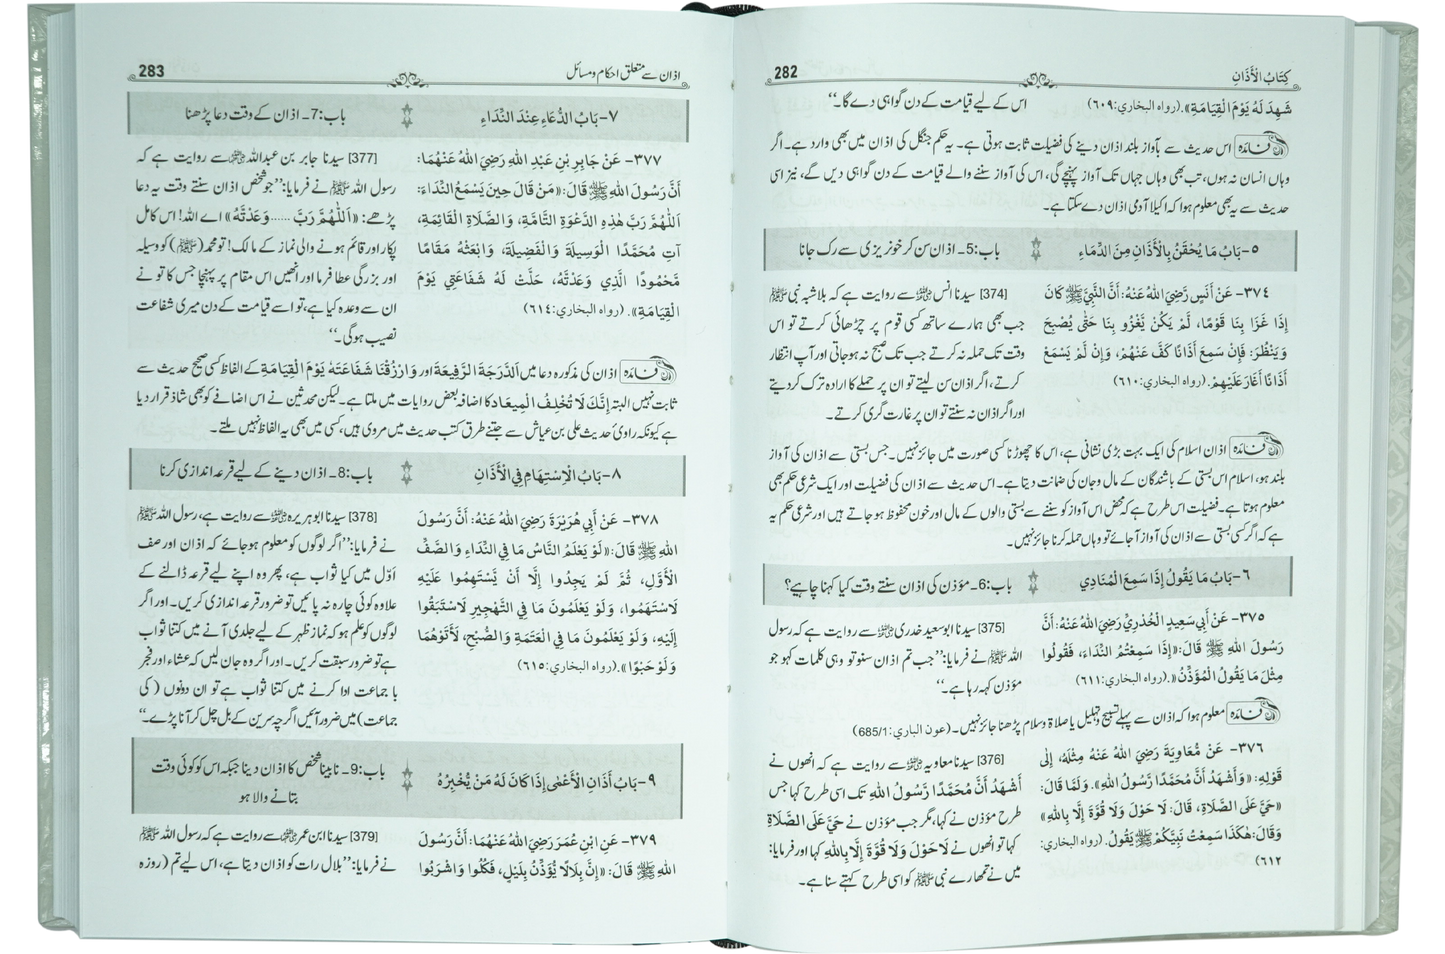 كِتَابُ الْأَذَانِ
282
شَهِدَ لَهُ يَوْمَ الْقِيَامَةِ». (رواه البخاري: ٦٠٩)
اس کے لیے قیامت کے دن گواہی دے گا۔‘‘
فائدہ اس حدیث سے بآواز بلند اذان دینے کی فضیلت ثابت ہوتی ہے۔ یہ حکم جنگل کی اذان میں بھی وارد ہے۔ اگر
وہاں انسان نہ ہوں، تب بھی وہاں جہاں تک آواز پہنچے گی، اس کی آواز سننے والے قیامت کے دن گواہی دیں گے، نیز اسی
حدیث سے یہ بھی معلوم ہوا کہ اکیلا آدمی اذان دے سکتا ہے۔
٥- بَابُ مَا يُحْقَنُ بِالْأَذَانِ مِنَ الدِّمَاءِ
باب: 5۔ اذان سن کر خونریزی سے رک جانا
٣٧٤- عَنْ أَنَسٍ رَّضِيَ اللهُ عَنْهُ: أَنَّ النَّبِيَّ ﷺ كَانَ
إِذَا غَزَا بِنَا قَوْمًا، لَمْ يَكُنْ يَغْزُو بِنَا حَتَّى يُصْبِحَ
وَيَنْظُرَ: فَإِنْ سَمِعَ أَذَانًا كَفَّ عَنْهُمْ، وَإِنْ لَمْ يَسْمَعْ
أَذَانًا أَغَارَ عَلَيْهِمْ. (رواه البخاري: ٦١٠)
[374] سیدنا انس ؓ سے روایت ہے کہ بلاشبہ نبی ﷺ
جب بھی ہمارے ساتھ کسی قوم پر چڑھائی کرتے تو اس
وقت تک حملہ نہ کرتے جب تک صبح نہ ہو جاتی اور آپ انتظار
کرتے، اگر اذان سن لیتے تو ان پر حملے کا ارادہ ترک کر دیتے
اور اگر اذان نہ سنتے تو ان پر غارت گری کرتے۔
فائدہ اذان اسلام کی ایک بہت بڑی نشانی ہے، اس کا چھوڑنا کسی صورت میں جائز نہیں۔ جس بستی سے اذان کی آواز
بلند ہو، اسلام اس بستی کے باشندگان کے مال و جان کی ضمانت دیتا ہے۔ اس حدیث سے اذان کی فضیلت اور ایک شرعی حکم بھی
معلوم ہوتا ہے۔ فضیلت اس طرح ہے کہ محض اس آواز کو سننے سے بستی والوں کے مال اور خون محفوظ ہو جاتے ہیں اور شرعی حکم یہ
ہے کہ اگر کسی بستی سے اذان کی آواز آ جائے تو وہاں حملہ کرنا جائز نہیں۔
٦- بَابُ مَا يَقُولُ إِذَا سَمِعَ الْمُنَادِي
باب: 6۔ مؤذن کی اذان سنتے وقت کیا کہنا چاہیے؟
٣٧٥- عَنْ أَبِي سَعِيدٍ الْخُدْرِيِّ رَضِيَ اللهُ عَنْهُ: أَنَّ
رَسُولَ اللهِ ﷺ قَالَ: «إِذَا سَمِعْتُمُ النِّدَاءَ، فَقُولُوا
مِثْلَ مَا يَقُولُ الْمُؤَذِّنُ». (رواه البخاري: ٦١١)
[375] سیدنا ابوسعید خدری ؓ سے روایت ہے کہ رسول
اللہ ﷺ نے فرمایا: ’’جب تم اذان سنو تو وہی کلمات کہو جو
مؤذن کہہ رہا ہے۔‘‘
فائدہ معلوم ہوا کہ اذان سے پہلے تسبیح و تہلیل یا صلاۃ و سلام پڑھنا جائز نہیں۔ (عون الباري: 685/1)
٣٧٦- عَنْ مُّعَاوِيَةَ رَضِيَ اللهُ عَنْهُ مِثْلَهُ، إِلَى
قَوْلِهِ: «وَأَشْهَدُ أَنَّ مُحَمَّدًا رَّسُولُ اللهِ». وَلَمَّا قَالَ:
«حَيَّ عَلَى الصَّلَاةِ، قَالَ: لَا حَوْلَ وَلَا قُوَّةَ إِلَّا بِاللهِ»
وَقَالَ: هٰكَذَا سَمِعْتُ نَبِيَّكُمْ ﷺ يَقُولُ. (رواه البخاري:
٦١٢)
[376] سیدنا معاویہ ؓ سے روایت ہے کہ انھوں نے
أَشْهَدُ أَنَّ مُحَمَّدًا رَّسُولُ اللهِ تک اسی طرح کہا جس
طرح مؤذن نے کہا، مگر جب مؤذن نے حَيَّ عَلَى الصَّلَاةِ
کہا تو انھوں نے لَا حَوْلَ وَلَا قُوَّةَ إِلَّا بِاللهِ کہا اور فرمایا:
میں نے تمھارے نبی ﷺ کو اسی طرح کہتے سنا ہے۔
اذان سے متعلق احکام و مسائل
283
٧- بَابُ الدُّعَاءِ عِنْدَ النِّدَاءِ
باب: 7۔ اذان کے وقت دعا پڑھنا
٣٧٧- عَنْ جَابِرِ بْنِ عَبْدِ اللهِ رَضِيَ اللهُ عَنْهُمَا:
أَنَّ رَسُولَ اللهِ ﷺ قَالَ: «مَنْ قَالَ حِينَ يَسْمَعُ النِّدَاءَ:
اَللّٰهُمَّ رَبَّ هٰذِهِ الدَّعْوَةِ التَّامَّةِ، وَالصَّلَاةِ الْقَائِمَةِ،
آتِ مُحَمَّدًا الْوَسِيلَةَ وَالْفَضِيلَةَ، وَابْعَثْهُ مَقَامًا
مَّحْمُودًا الَّذِي وَعَدْتَّهُ، حَلَّتْ لَهُ شَفَاعَتِي يَوْمَ
الْقِيَامَةِ». (رواه البخاري: ٦١٤)
[377] سیدنا جابر بن عبداللہ ؓ سے روایت ہے کہ
رسول اللہ ﷺ نے فرمایا: ’’جو شخص اذان سنتے وقت یہ دعا
پڑھے: «اَللّٰهُمَّ رَبَّ ...... وَعَدْتَّهُ» اے اللہ! اس کامل
پکار اور قائم ہونے والی نماز کے مالک! تو محمد (ﷺ) کو وسیلہ
اور بزرگی عطا فرما اور انھیں اس مقام پر پہنچا جس کا تو نے
ان سے وعدہ کیا ہے، تو اسے قیامت کے دن میری شفاعت
نصیب ہوگی۔‘‘
فائدہ اذان کی مذکورہ دعا میں اَلدَّرَجَةَ الرَّفِيعَةَ اور وَارْزُقْنَا شَفَاعَتَهُ يَوْمَ الْقِيَامَةِ کے الفاظ کسی صحیح حدیث سے
ثابت نہیں البتہ إِنَّكَ لَا تُخْلِفُ الْمِيعَاد کا اضافہ بعض روایات میں ملتا ہے۔ لیکن محدثین نے اس اضافے کو بھی شاذ قرار دیا
ہے کیونکہ راویٔ حدیث علی بن عیاش سے جتنے طرق کتب حدیث میں مروی ہیں، کسی میں بھی یہ الفاظ نہیں ملتے۔
٨- بَابُ الْاِسْتِهَامِ فِي الْأَذَانِ
باب: 8۔ اذان دینے کے لیے قرعہ اندازی کرنا
٣٧٨- عَنْ أَبِي هُرَيْرَةَ رَضِيَ اللهُ عَنْهُ: أَنَّ رَسُولَ
اللهِ ﷺ قَالَ: «لَوْ يَعْلَمُ النَّاسُ مَا فِي النِّدَاءِ وَالصَّفِّ
الْأَوَّلِ، ثُمَّ لَمْ يَجِدُوا إِلَّا أَنْ يَّسْتَهِمُوا عَلَيْهِ
لَاسْتَهَمُوا، وَلَوْ يَعْلَمُونَ مَا فِي التَّهْجِيرِ لَاسْتَبَقُوا
إِلَيْهِ، وَلَوْ يَعْلَمُونَ مَا فِي الْعَتَمَةِ وَالصُّبْحِ، لَأَتَوْهُمَا
وَلَوْ حَبْوًا». (رواه البخاري: ٦١٥)
[378] سیدنا ابو ہریرہ ؓ سے روایت ہے، رسول اللہ ﷺ
نے فرمایا: ’’اگر لوگوں کو معلوم ہو جائے کہ اذان اور صف
اوّل میں کیا ثواب ہے، پھر وہ اپنے لیے قرعہ ڈالنے کے
علاوہ کوئی چارہ نہ پائیں تو ضرور قرعہ اندازی کریں۔ اور اگر
لوگوں کو علم ہو کہ نماز ظہر کے لیے جلدی آنے میں کتنا ثواب
ہے تو ضرور سبقت کریں۔ اور اگر وہ جان لیں کہ عشاء اور فجر
با جماعت ادا کرنے میں کتنا ثواب ہے تو ان دونوں (کی
جماعت) میں ضرور آئیں اگرچہ سرین کے بل چل کر آنا پڑے۔‘‘
٩- بَابُ أَذَانِ الْأَعْمٰى إِذَا كَانَ لَهُ مَنْ يُّخْبِرُهُ
باب: 9۔ نابینا شخص کا اذان دینا جبکہ اس کو کوئی وقت
بتانے والا ہو
٣٧٩- عَنِ ابْنِ عُمَرَ رَضِيَ اللهُ عَنْهُمَا: أَنَّ رَسُولَ
اللهِ ﷺ قَالَ: «إِنَّ بِلَالًا يُّؤَذِّنُ بِلَيْلٍ، فَكُلُوا وَاشْرَبُوا
[379] سیدنا ابن عمر ؓ سے روایت ہے کہ رسول اللہ ﷺ
نے فرمایا: ’’بلال رات کو اذان دیتا ہے، اس لیے تم (روزہ